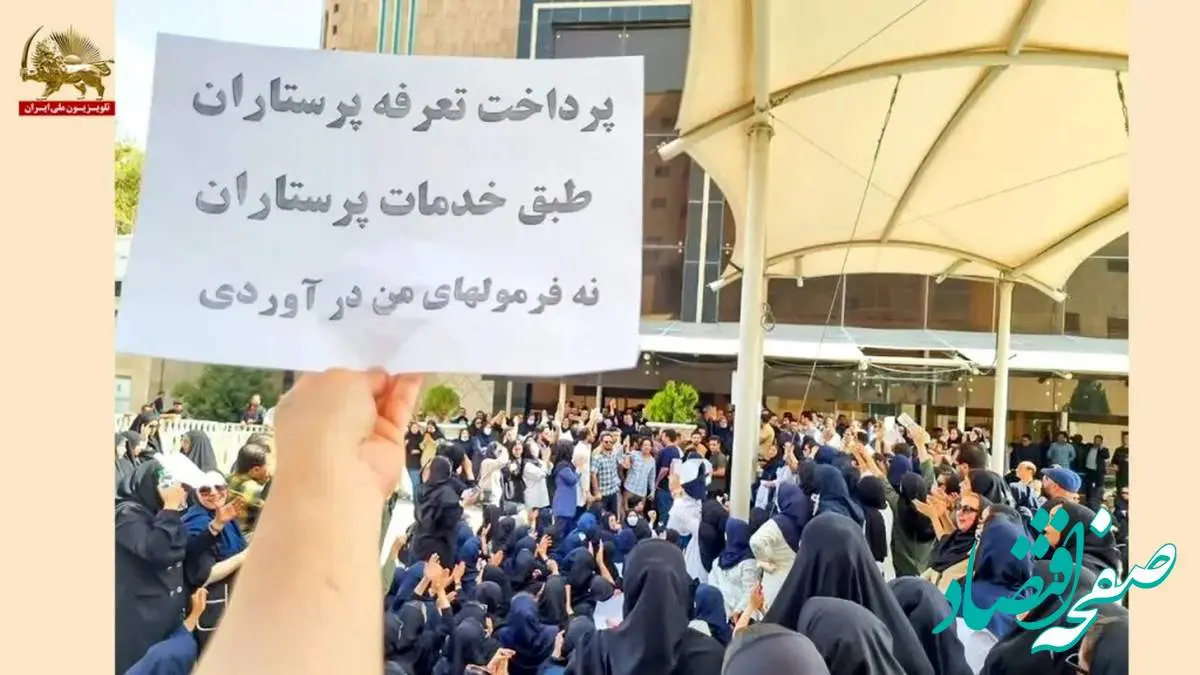 پرداخت تعرفه پرستاران
طبق خدمات پرستاران
نه فرمولهای من در آوردی
تلویزیون ملی ایران
صفحه اقتصاد